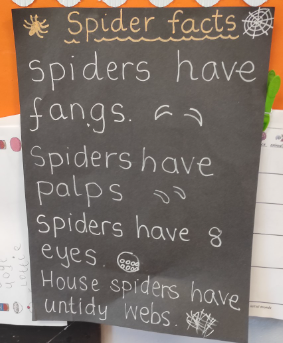 Spider facts
Spiders have
fangs.
Spiders have
palps
Spiders have 8
eyes.
House spiders have
untidy webs.